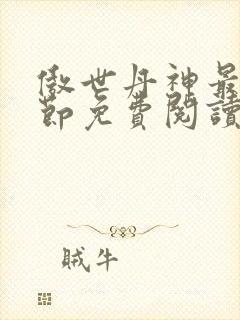 傲世丹神最
節免費閱讀
賊牛